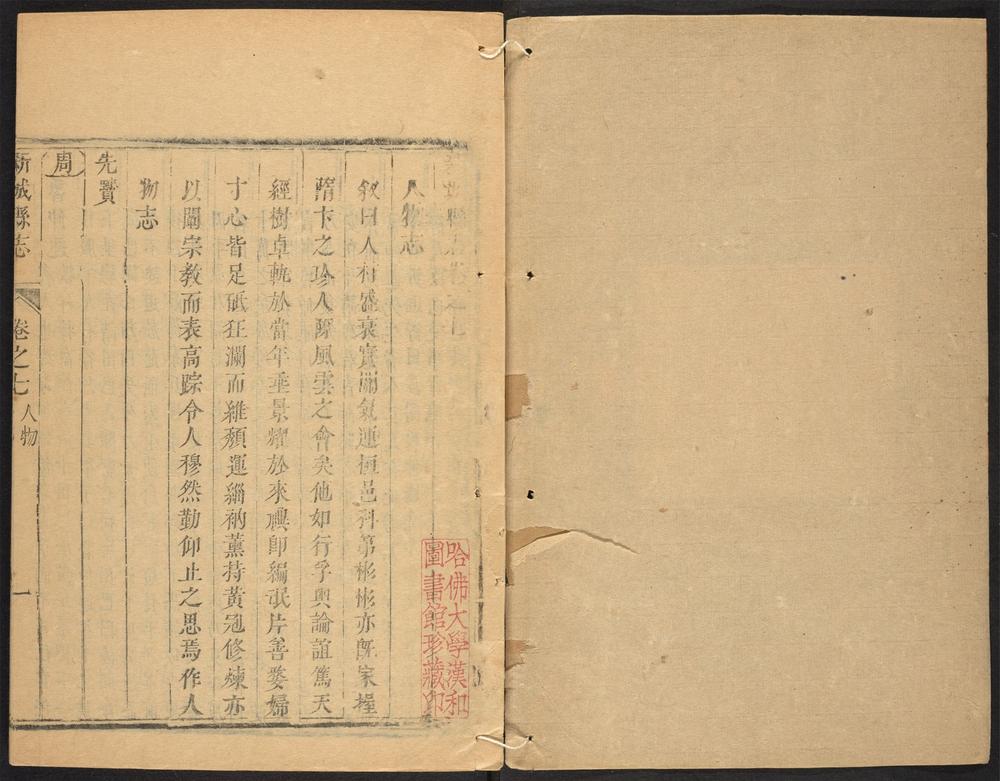 新城縣志卷之七
人物志
敘曰人材盛衰實關氣運桓邑科第彬彬亦旣家握
隋卞之珍人際風雲之會矣他如行孚輿論誼篤天
經樹卓軌於當年垂景耀於來禩卽編氓片善嫠婦
寸心皆足砥狂瀾而維頹運緇衲薰持黃冠修煉亦
以闡宗教而表高踪令人穆然勤仰止之思焉作人
物志
先賢
周
新城縣志
卷之七
人物
一
哈佛大學漢和
圖書館珍藏印